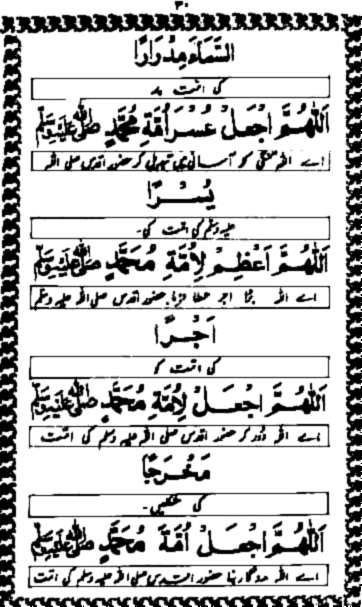 ۳۰
السَّمَاءَ مِدْرَارًا
کی امت پر
اَللّٰهُمَّ اجْعَلْ عُسْرَ اُمَّةِ مُحَمَّدٍ ﷺ
اے اللہ تنگی کو آسانی میں تبدیل کر حضور اقدس صلی اللہ
يُسْرًا
علیہ وسلم کی امت کی۔
اَللّٰهُمَّ اَعْظِمْ لِاُمَّةِ مُحَمَّدٍ ﷺ
اے اللہ بڑا اجر عطا فرما حضور اقدس صلی اللہ علیہ وسلم
اَجْرًا
کی امت کو
اَللّٰهُمَّ اجْعَلْ لِاُمَّةِ مُحَمَّدٍ ﷺ
اے اللہ دور کر حضور اقدس صلی اللہ علیہ وسلم کی امت
مَخْرَجًا
کی
اَللّٰهُمَّ اجْعَلْ اُمَّةَ مُحَمَّدٍ ﷺ
اے اللہ مددگار بنا حضور اقدس صلی اللہ علیہ وسلم کی امت